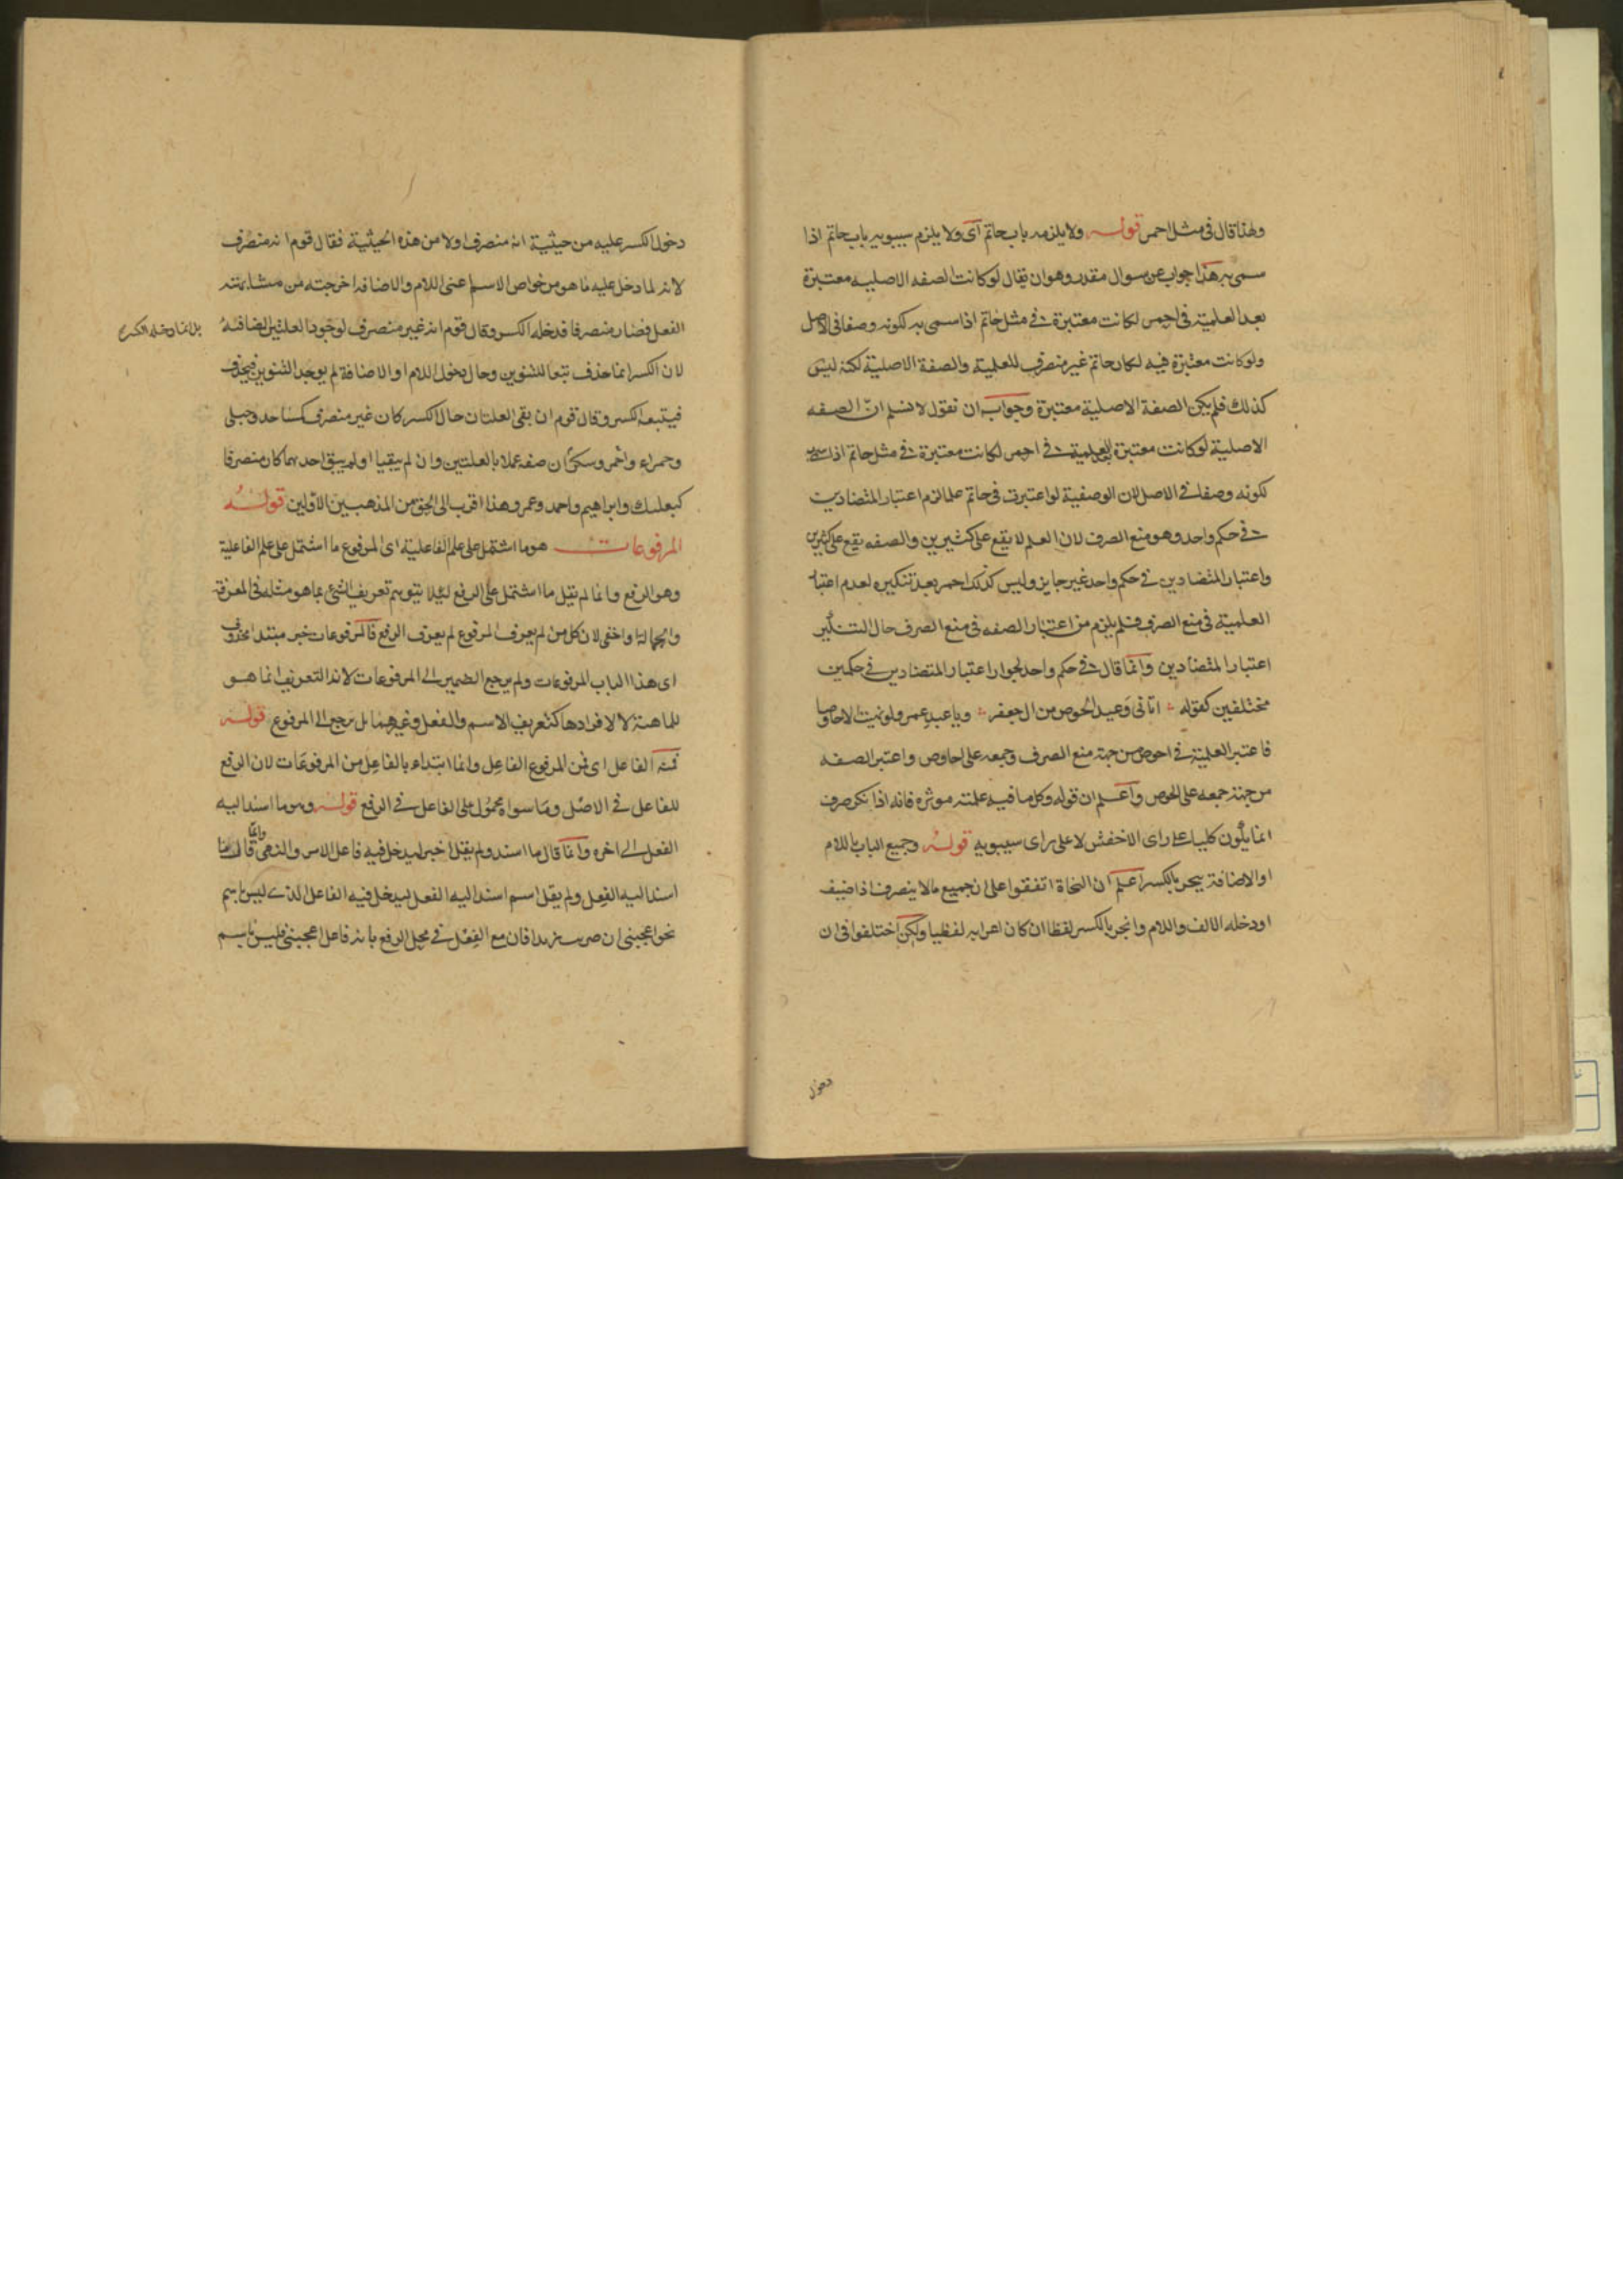 ولهذا قال في مثل احمر قوله ولا يلزمه باب حاتم اى ولا يلزم سيبويه باب حاتم اذا
سمى به هذا جواب عن سوال مقدر وهو ان يقال لو كانت الصفه الاصليه معتبرة
بعد العلمية في احمر لكانت معتبرة في مثل حاتم اذا سمى به لكونه وصفا في الاصل
ولو كانت معتبرة فيه لكان حاتم غير منصرف للعلمية والصفة الاصلية لكنه ليس
كذلك فلم يكن الصفة الاصلية معتبرة وجوابه ان نقول لا نسلم انّ الصفه
الاصلية لو كانت معتبرة بعد العلمية في احمر لكانت معتبرة في مثل حاتم اذا سمى به
لكونه وصفا في الاصل لان الوصفية لو اعتبرت في حاتم علما لزم اعتبار المتضادين
في حكم واحد وهو منع الصرف لان العلم لا يقع على كثيرين والصفه يقع على كثيرين
واعتبار المتضادين في حكم واحد غير جايز وليس كذلك احمر بعد تنكيره لعدم اعتبار
العلمية في منع الصرف فلم يلزم من اعتبار الصفه في منع الصرف حال التنكير
اعتبار المتضادين وانما قال في حكم واحد لجواز اعتبار المتضادين في حكمين
مختلفين كقوله اتانى وعيد الحوص من ال جعفر ويا عبد عمرو لو نهيت الاحاوصا
فاعتبر العلمية في احوص من جهة منع الصرف وجمعه على احاوص واعتبر الصفه
من جهة جمعه على الحوص واعلم ان قوله وكل ما فيه علمته موثره فانه اذا نكر صرف
انما يكون كليا على راى الاخفش لا على راى سيبويه قوله وجميع الباب باللام
او الاضافة ينجر بالكسر اعلم ان النحاة اتفقوا على ان جميع ما لا ينصرف اذا اضيف
او دخله الالف واللام وانجر بالكسر لفظا ان كان اعرابه لفظيا ولكن اختلفوا في ان
دخول
دخول الكسر عليه من حيثية انه منصرف اولا من هذه الحيثية فقال قوم انه منصرف
لانه لما دخل عليه ما هو من خواص الاسم اعنى اللام والاضافه اخرجته من مشابهته
الفعل فصار منصرفا قد خله الكسر وقال قوم انه غير منصرف لوجود العلتين
بل انما دخله الكسره
لان الكسر انما حذف تبعا للتنوين وحال دخول اللام او الاضافة لم يوجد التنوين فيحذف
فيتبعه الكسر وقال قوم ان بقى العلتان حال الكسر كان غير منصرف كمساجد وحبلى
وحمراء واحمر وسكران صفة عملا بالعلتين وان لم يبقيا او لم يبق احدهما كان منصرفا
كبعلبك وابراهيم واحمد وعمر وهذا اقرب الى الحق من المذهبين الاولين قوله
المرفوعات هو ما اشتمل على علم الفاعلية اى المرفوع ما اشتمل على علم الفاعلية
وهو الرفع وانما لم يقل ما اشتمل على الرفع ليلا يتوهم تعريف الشئ بما هو مثله في المعرفة
والجهالة او اخفى لان كل من لم يعرف المرفوع لم يعرف الرفع فالمرفوعات خبر مبتدا محذوف
اى هذا الباب المرفوعات ولم يرجع الضمير الى المرفوعات لان التعريف انما هو
للماهية لا لافرادها كتعريف الاسم والفعل وغيرهما بل يرجع الى المرفوع قوله
فمنه الفاعل اى فمن المرفوع الفاعل وانما ابتداء بالفاعل من المرفوعات لان الرفع
للفاعل في الاصل وما سواه محمول على الفاعل في الرفع قوله وهو ما اسند اليه
الفعل الى اخره وانما قال ما اسند ولم يقل اخبر ليدخل فيه فاعل الامر والنهى وانما قال ما
اسند اليه الفعل ولم يقل اسم اسند اليه الفعل ليدخل فيه الفاعل الذى ليس باسم
نحو اعجبنى ان ضربت زيدا فان مع الفعل في محل الرفع بانه فاعل اعجبنى فليس باسم